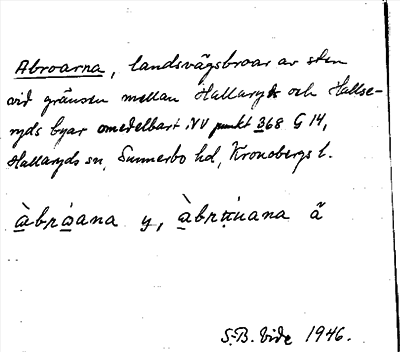 Abroarna, landsvägsbroar av sten
vid gränsen mellan Hallaryds och Hallse-
ryds byar omedelbart NV punkt 368 G 14,
Hallaryds sn, Sunnerbo hd, Kronobergs l.
àbrꞷ́ana y, àbrꭒ́uana ä
S.-B. Vide 1946.